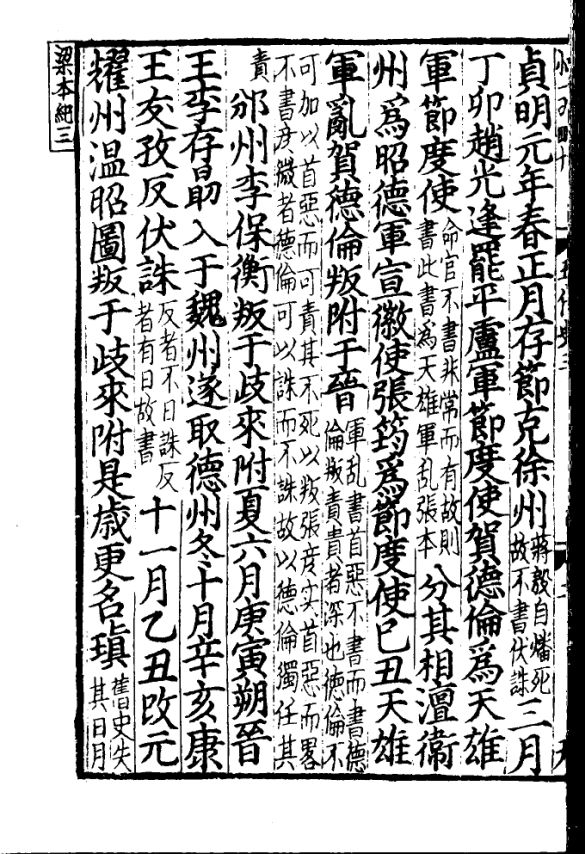 貞明元年春正月存節克徐州蔣殷自燔死故不書伏誅三月
丁卯趙光逢罷平盧軍節度使賀德倫爲天雄
軍節度使命官不書非常而有故則書此書爲天雄軍乱張本分其相澶衞
州爲昭德軍宣徽使張筠爲節度使已丑天雄
軍亂賀德倫叛附于晉軍乱書首惡不書而書德倫叛責貴者深也德倫不
可加以首惡而可責其不死以叛張彦实首惡而畧
不書彦微者德倫可以誅而不誅故以德倫獨任其
責邠州李保衡叛于歧來附夏六月庚寅朔晉
王李存勗入于魏州遂取德州冬十月辛亥康
王友孜反伏誅反者不日誅反者有日故書十一月乙丑改元
耀州温昭圖叛于歧來附是歲更名瑱舊史失其日月
梁本紀三